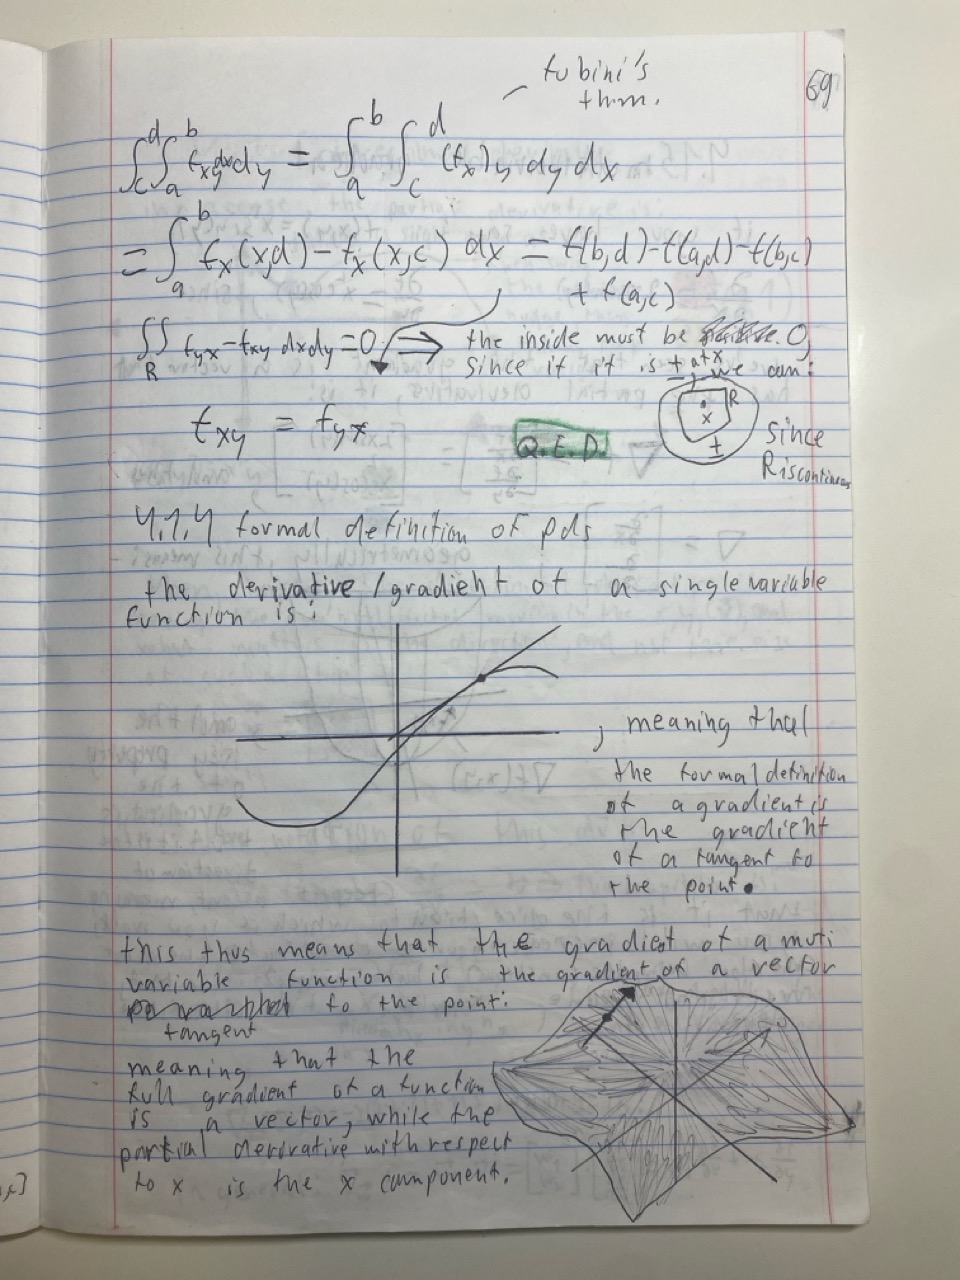 69
fubini's
thm.
∫_c^d ∫_a^b f_xy dx dy = ∫_a^b ∫_c^d (f_x)_y dy dx
= ∫_a^b f_x(x,d) - f_x(x,c) dx = f(b,d) - f(a,d) - f(b,c)
+ f(a,c)
∬_R f_yx - f_xy dx dy = 0 ⇒ the inside must be 0,
since if it is + at x, we can:
R
x
+
f_xy = f_yx
Q.E.D.
since
R is continuous
4.1.4 formal definition of pds
the derivative/gradient of a single variable
function is:
, meaning that
the formal definition
of a gradient is
the gradient
of a tangent to
the point.
this thus means that the gradient of a muti
variable function is the gradient of a vector
to the point:
tangent
meaning that the
full gradient of a function
is a vector, while the
partial derivative with respect
to x is the x component.